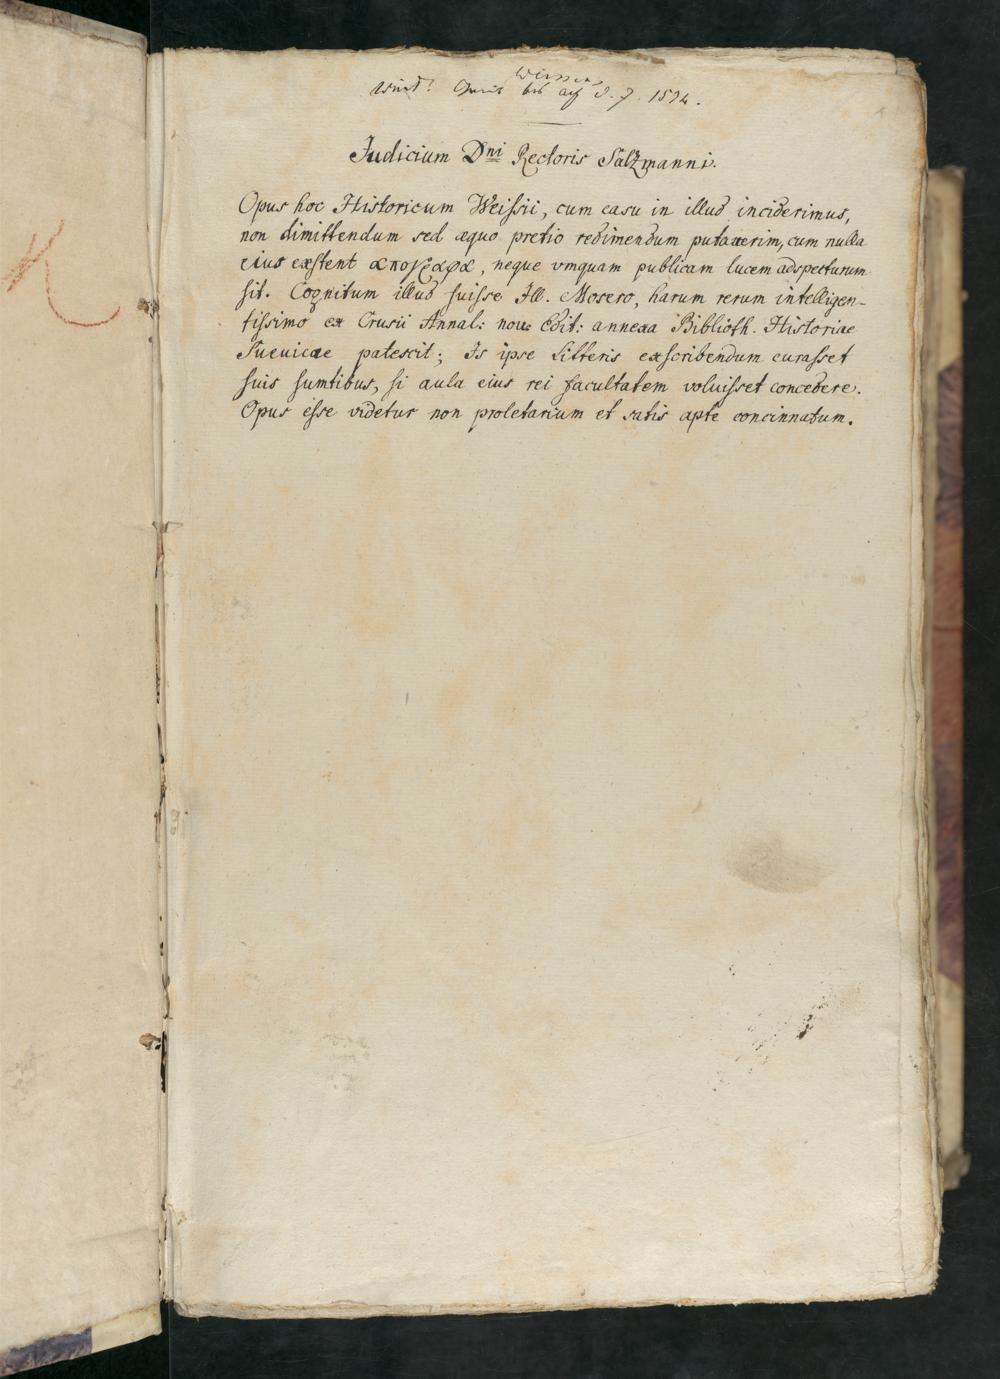 Wissens
Wirt. bis auf d. J. 1594.
Judicium Dni Rectoris Salzmanni.
Opus hoc Historicum Weissii, cum casu in illud inciderimus,
non dimittendum sed æquo pretio redimendum putauerim, cum nulla
eius exstent απογραφα, neque vmquam publicam lucem adspecturum
sit. Cognitum illud fuisse Ill. Mosero, harum rerum intelligen-
tissimo ex Crusii Annal: nou. Edit: annexa Biblioth. Historiae
Sueuicae patescit; Is ipse Litteris exscribendum curasset
suis sumtibus, si aula eius rei facultatem voluisset concedere.
Opus esse videtur non proletarium et satis apte concinnatum.